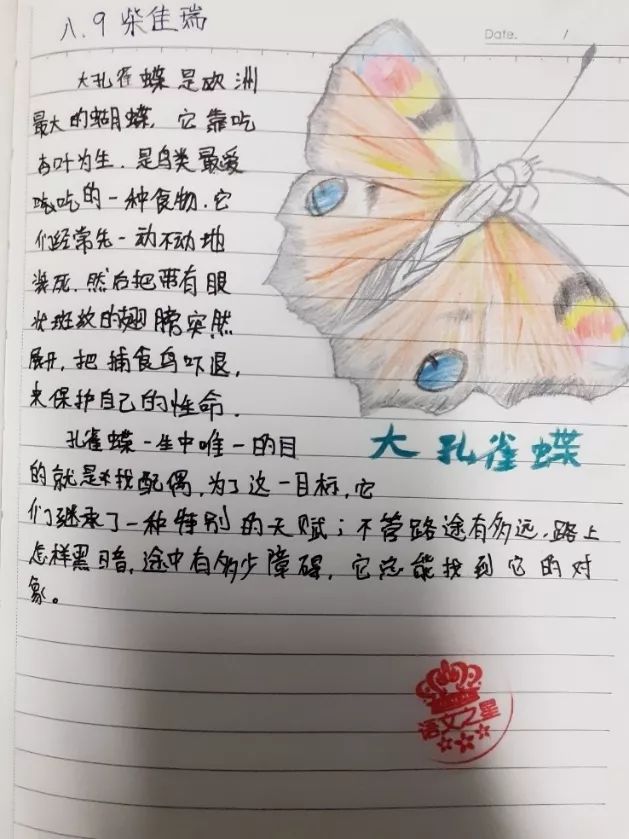 八.9 柴佳瑞
Date. /
大孔雀蝶是欧洲
最大的蝴蝶，它靠吃
杏叶为生，是鸟类最爱
吃的一种食物.它
们经常先一动不动地
装死,然后把带有眼
状斑纹的翅膀突然
展开,把捕食鸟吓退,
来保护自己的性命.
孔雀蝶一生中唯一的目
的就是寻找配偶,为了这一目标,它
们继承了一种特别的天赋;不管路途有多远,路上
怎样黑暗,途中有多少障碍,它总能找到它的对
象。
大孔雀蝶
语文之星